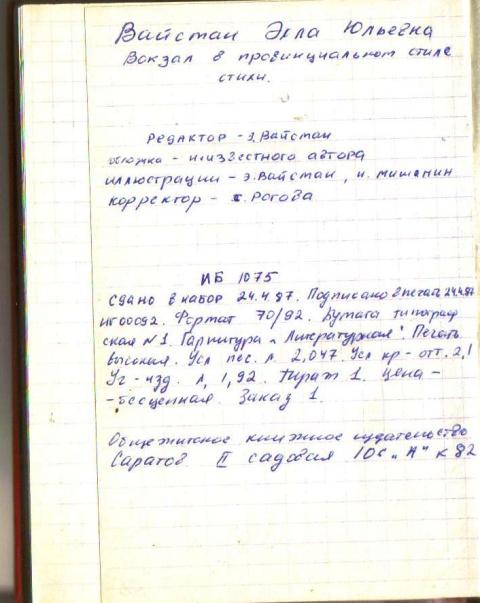 Вайстан Элла Юльевна
Вокзал в провинциальном стиле
стихи.
Редактор - Э. Вайстан
обложка - неизвестного автора
иллюстрации - Э. Вайстан, и. мишанин
корректор - Рогова
ИБ 1075
Сдано в набор 24.4.87. Подписано в печать 24.4.87
НГ00092. Формат 70/92. Бумага типограф
ская №1. Гарнитура „Литературная". Печать
высокая. Усл печ. л. 2,047. Усл кр - отт. 2,1
Уч - изд. л, 1,92. Тираж 1. Цена -
- бесценная. Заказ 1.
Общежитское книжное издательство
Саратов II садовая 106 „А" к 82